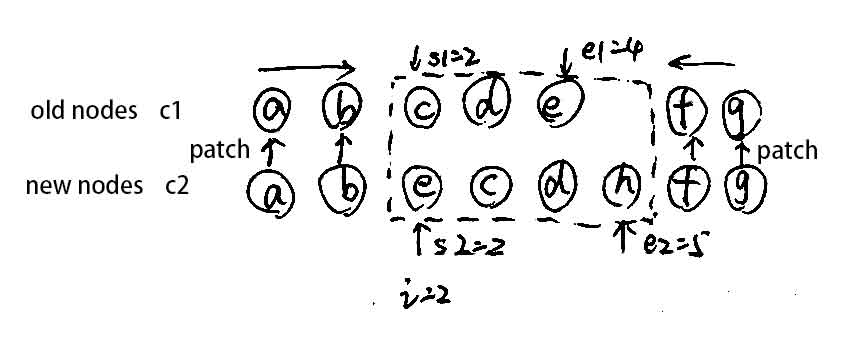 s1=2 e1=4
old nodes c1 a b c d e f g
patch patch
new nodes c2 a b e c d h f g
s2=2 e2=5
i=2